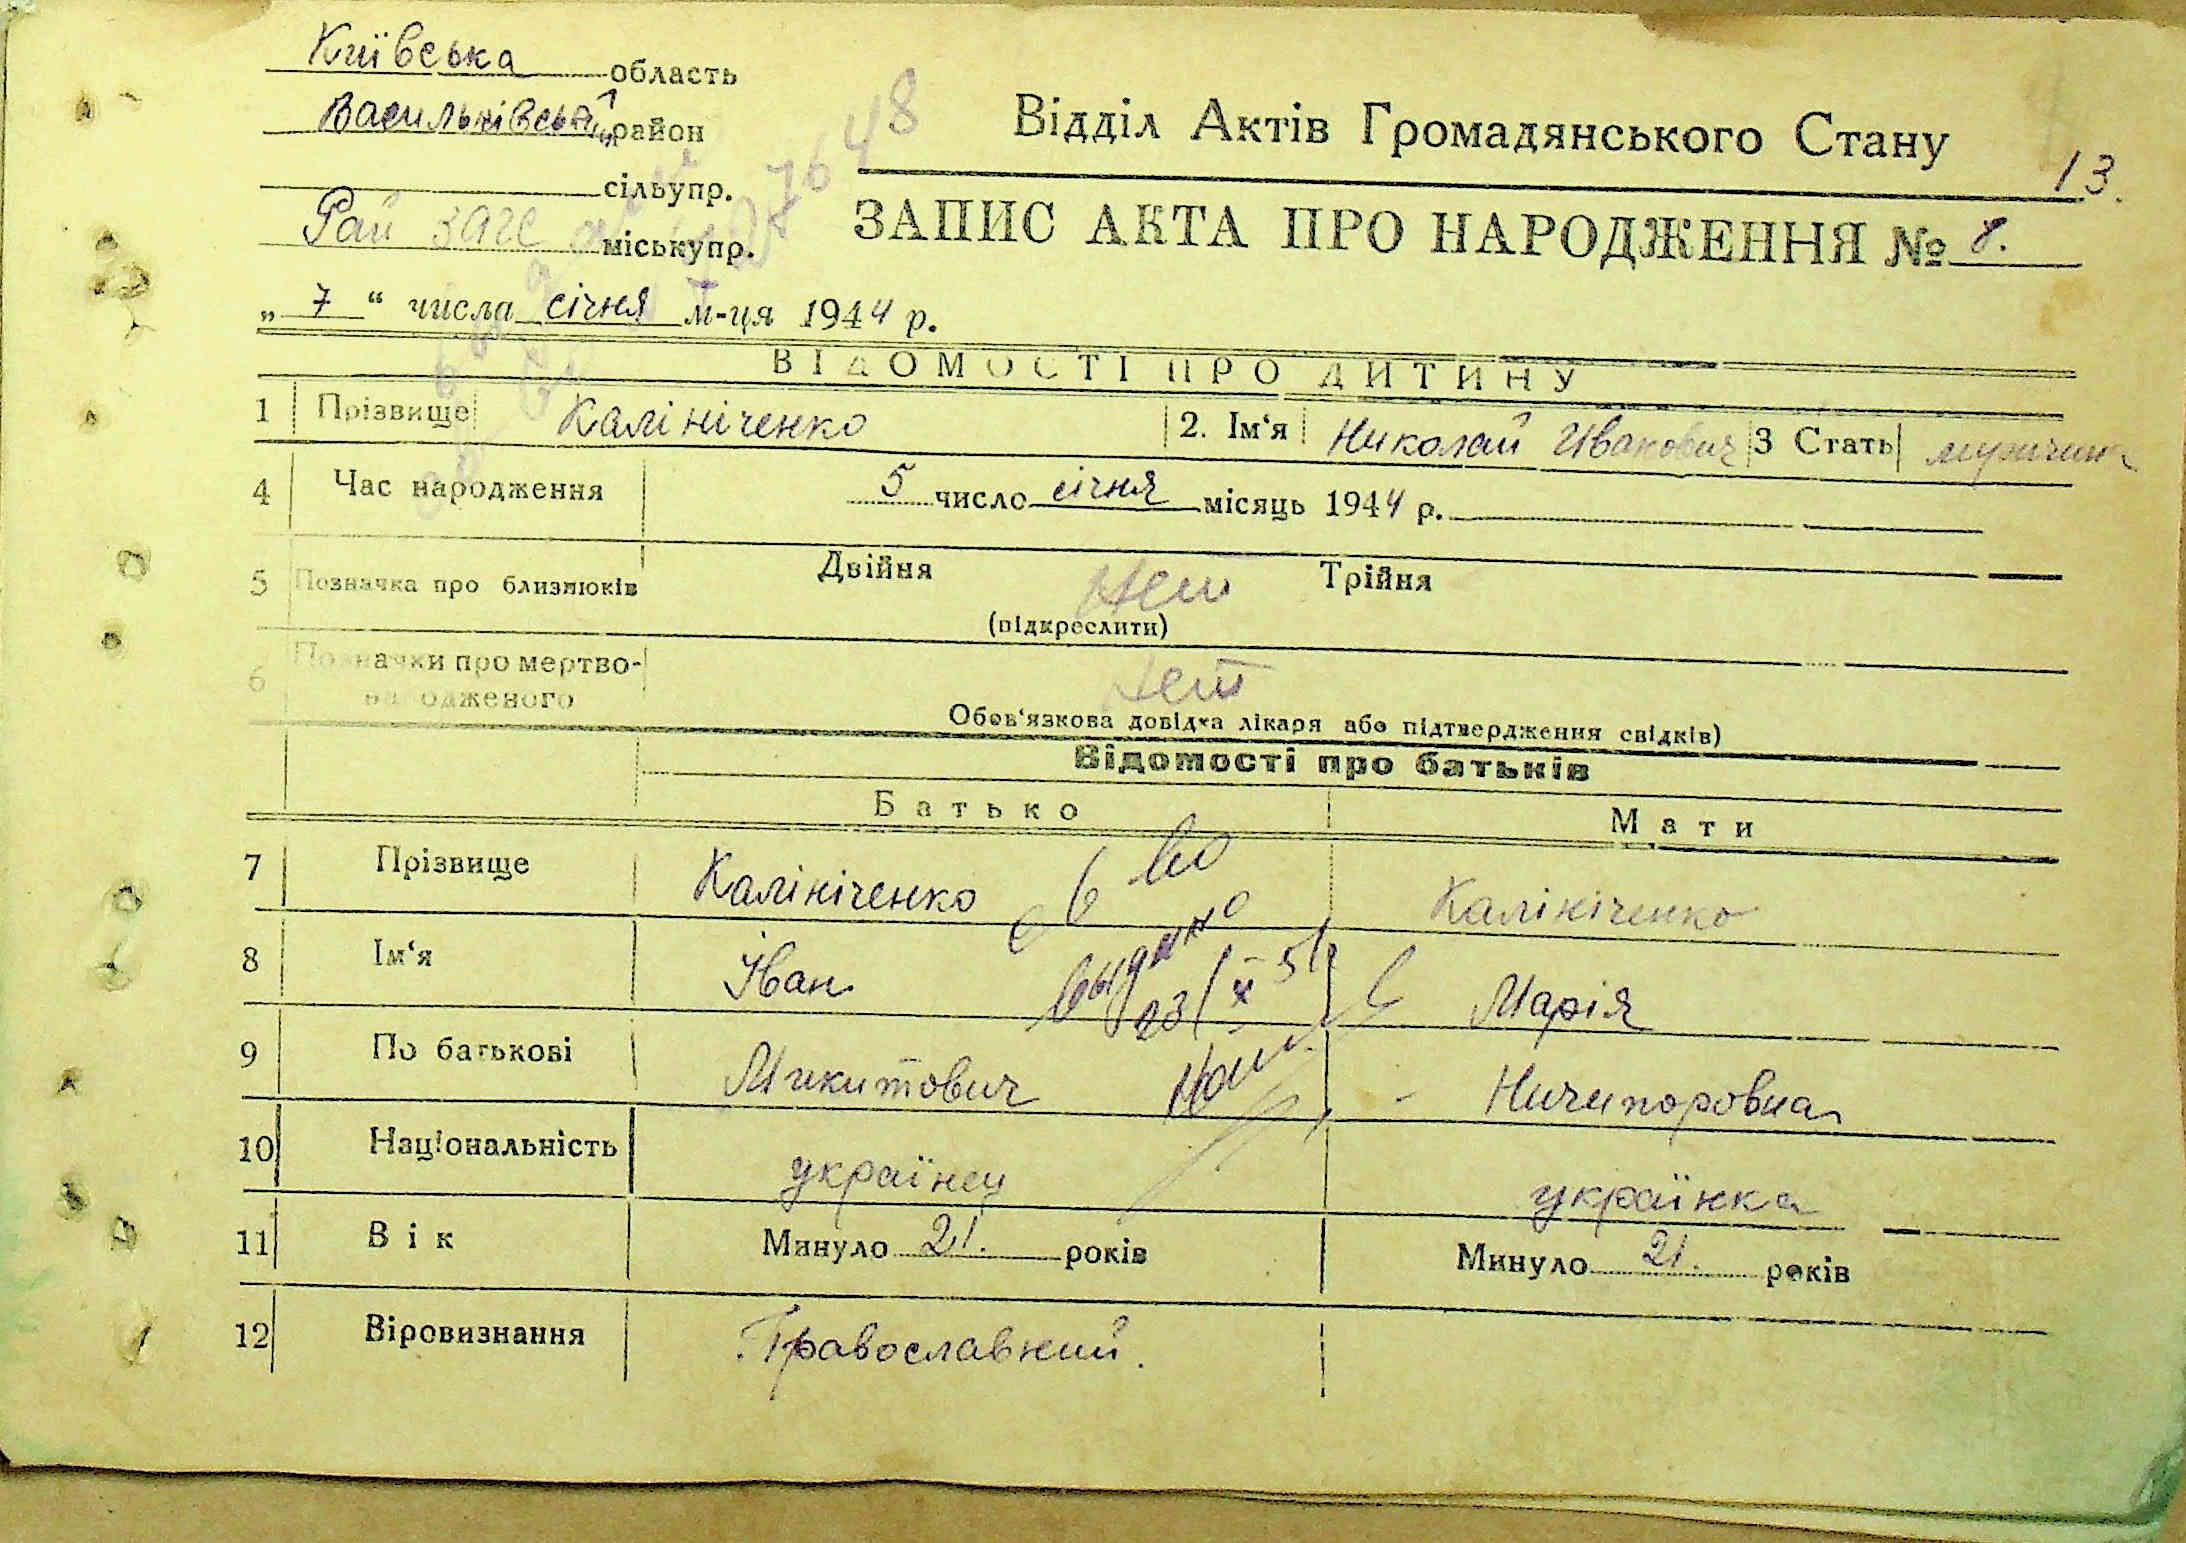 Київська область
Васильківський район
сільупр.
Рай ЗАГС міськупр.
Відділ Актів Громадянського Стану
13.
ЗАПИС АКТА ПРО НАРОДЖЕННЯ № 8.
„ 7 “ числа січня м-ця 1944 р.
ВІДОМОСТІ ПРО ДИТИНУ
1 Прізвище Калініченко 2. Ім‘я Николай Иванович 3 Стать мужчина
4 Час народження 5 число січня місяць 1944 р.
5 Позначка про близнюків Двійня Нет Трійня
(підкреслити)
6 Позначки про мертво-
народженого Нет
Обов‘язкова довідка лікаря або підтвердження свідків)
Відомості про батьків
Батько Мати
7 Прізвище Калініченко Калініченко
8 Ім‘я Іван Марія
выдано
23/X 51
9 По батькові Микитович Ничипоровна
10 Національність українец українка
11 Вік Минуло 21. років Минуло 21. років
12 Віровизнання Православний.